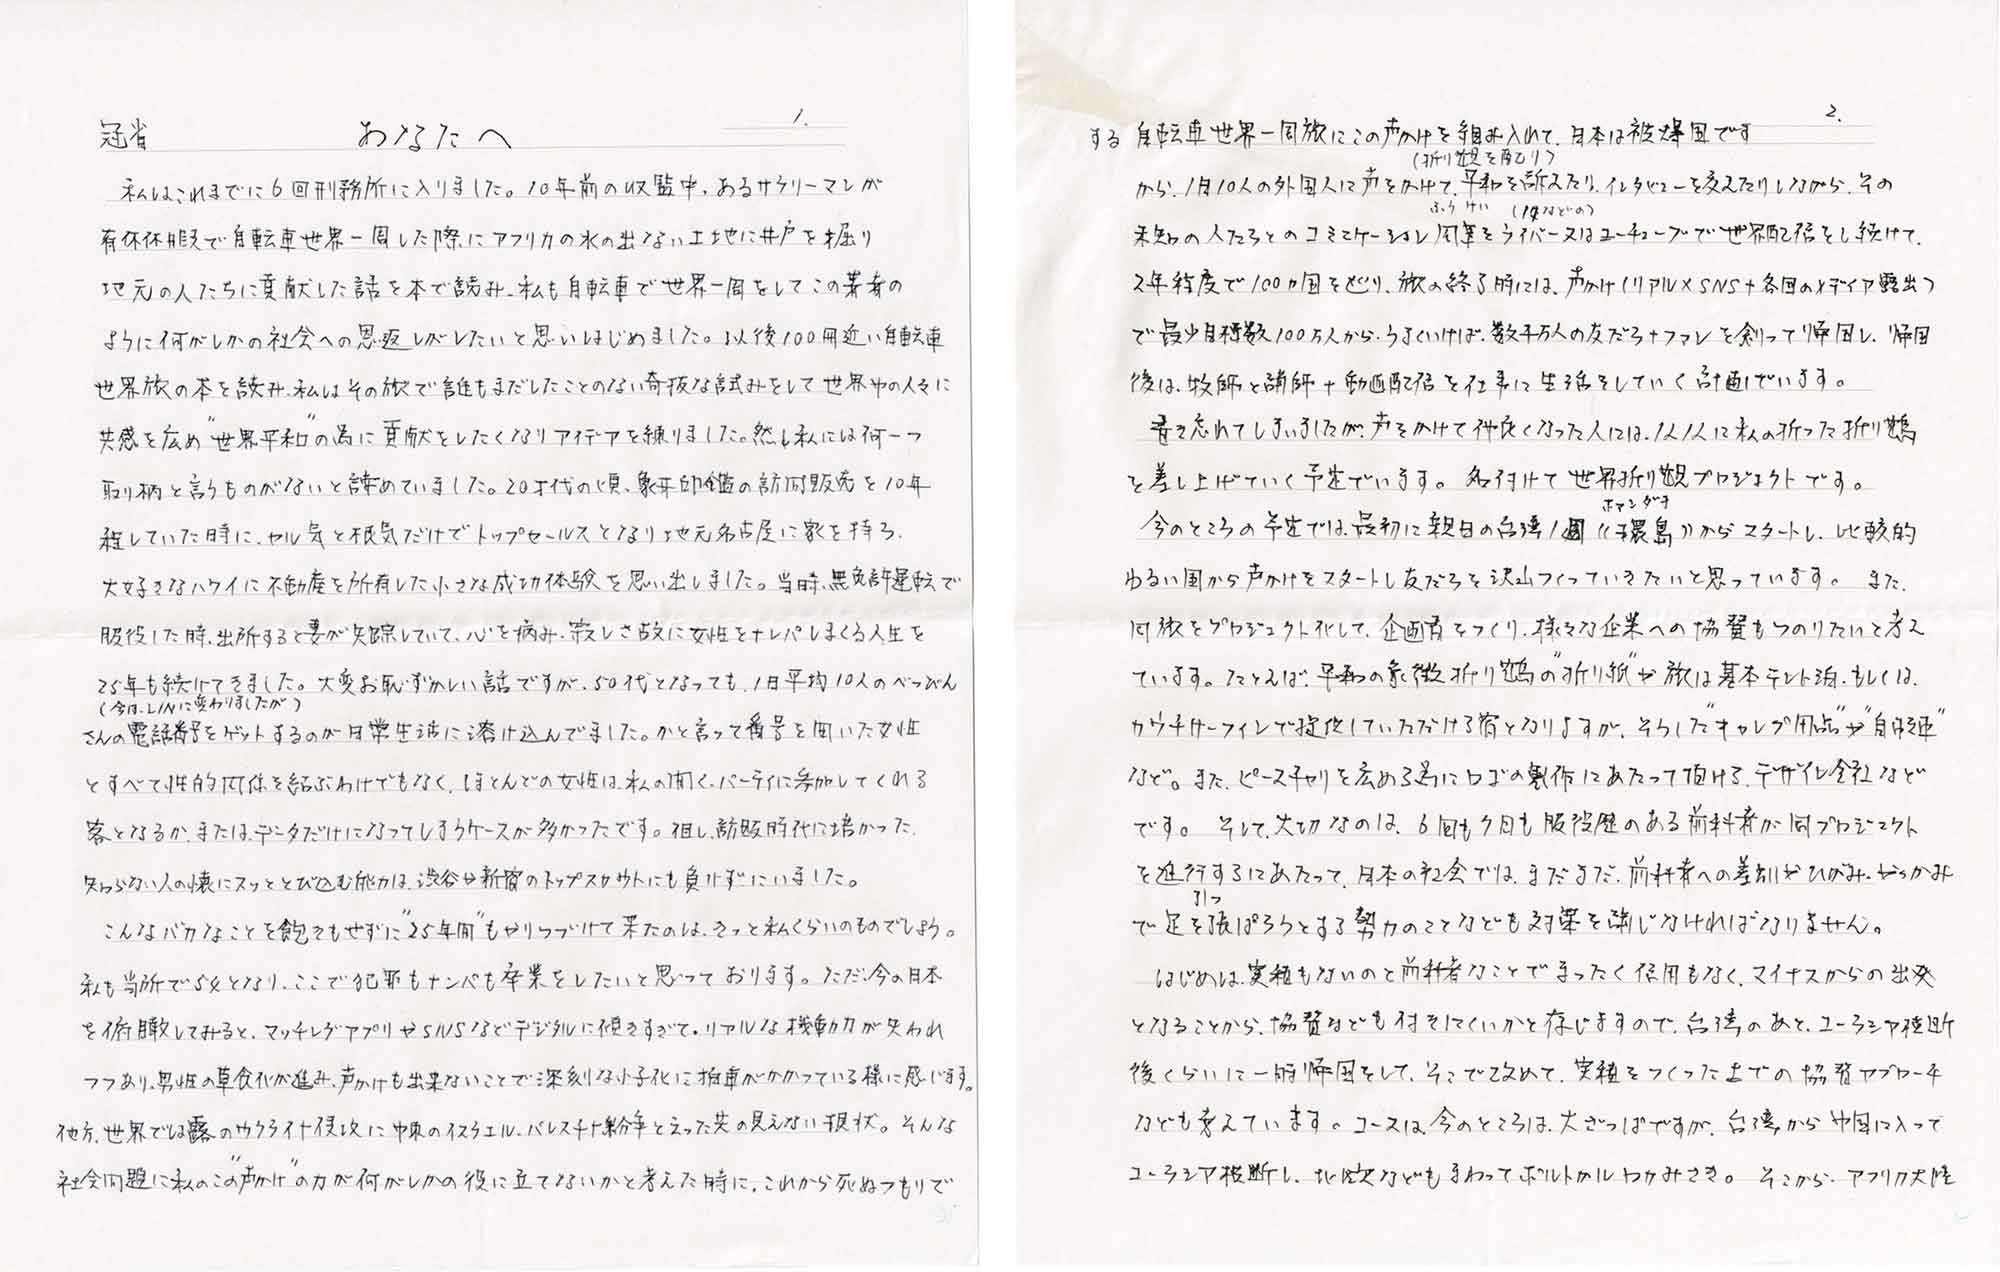 1.
冠省 あなたへ
私はこれまでに6回刑務所に入りました。10年前の収監中、あるサラリーマンが
有休休暇で自転車世界一周した際にアフリカの水の出ない土地に井戸を掘り
地元の人たちに貢献した話を本で読み、私も自転車で世界一周をしてこの著者の
ように何がしかの社会への恩返しがしたいと思いはじめました。以後100冊近い自転車
世界旅の本を読み、私はその旅で誰もまだしたことのない奇抜な試みをして世界中の人々に
共感を広め"世界平和"の為に貢献をしたくなりアイデアを練りました。然し私には何一つ
取り柄と言うものがないと諦めていました。20才代の頃、象牙印鑑の訪問販売を10年
程していた時に、ヤル気と根気だけでトップセールスとなり地元名古屋に家を持ち、
大好きなハワイに不動産を所有した小さな成功体験を思い出しました。当時、無免許運転で
服役した時、出所すると妻が失踪していて、心を病み、寂しさ故に女性をナンパしまくる人生を
25年も続けてきました。大変お恥ずかしい話ですが、50代となっても、1日平均10人のべっぴん
(今は、LINEに変わりましたが)
さんの電話番号をゲットするのが日常生活に溶け込んでました。かと言って番号を聞いた女性
とすべて性的関係を結ぶわけでもなく、ほとんどの女性は、私の開く、パーティに参加してくれる
客となるか、または、データだけになってしまうケースが多かったです。但し、訪販時代に培かった、
知らない人の懐にスッととび込む能力は、渋谷や新宿のトップスカウトにも負けずにいました。
こんなバカなことを飽きもせずに"25年間"もやりつづけて来たのは、きっと私くらいのものでしょう。
私も当所で54となり、ここで犯罪もナンパも卒業をしたいと思っております。ただ、今の日本
を俯瞰してみると、マッチングアプリやSNSなどデジタルに傾きすぎて、リアルな機動力が失われ
つつあり、男性の草食化が進み、声かけも出来ないことで深刻な少子化に拍車がかかっている様に感じます。
他方、世界では露のウクライナ侵攻に中東のイスラエル、パレスチナ紛争といった先の見えない現状。そんな
社会問題に私のこの"声かけ"の力が何がしかの役に立てないかと考えた時に、これから死ぬつもりで
2.
する 自転車世界一周旅にこの声かけを組み入れて、日本は被爆国です
(折り鶴を配り)
から、1日10人の外国人に声をかけて、平和を訴えたり、インタビューを交えたりしながら、その
ふうけい (11などの)
未知の人たちとのコミニケーション 風景をライバー又はユーチューブで世界配信をし続けて、
2年程度で100ヵ国をめぐり、旅の終了時には、声かけ(リアル×SNS+各国のメディア露出)
で最少目標数100万人から、うまくいけば、数千万人の友だち+ファンを創って帰国し、帰国
後は、牧師と講師+動画配信を仕事に生活をしていく計画でいます。
書き忘れてしまいましたが、声をかけて仲良くなった人には、1人1人に私の折った折り鶴
を差し上げていく予定でいます。名付けて世界折り鶴プロジェクトです。
ホァンダオ
今のところの予定では、最初に親日の台湾1週《環島》からスタートし、比較的
ゆるい国から声かけをスタートし友だちを沢山つくっていきたいと思っています。また、
同旅をプロジェクト化して、企画書をつくり、様々な企業への協賛もつのりたいと考え
ています。たとえば、平和の象徴折り鶴の"折り紙"や旅は基本テント泊、もしくは、
カウチサーフィンで提供していただける宿となりますが、そうした"キャンプ用品"や"自転車"
など。また、ピースチャリを広める為にロゴの製作にあたって頂ける、デザイン会社など
です。そして、大切なのは、6回も7回も服役歴のある前科者が同プロジェクト
を進行するにあたって、日本の社会では、まだまだ、前科者への差別やひがみ、やっかみ
引っ
で足を張ぱろうとする勢力のことなども対策を講じなければなりません。
はじめは、実積もないのと前科者なことでまったく信用もなく、マイナスからの出発
となることから、協賛なども付きにくいかと存じますので、台湾のあと、ユーラシア横断
後くらいに一時帰国をして、そこで改めて、実積をつくった上での協賛アプローチ
なども考えています。コースは、今のところは、大ざっぱですが、台湾から中国に入って
ユーラシア横断し、北欧などもまわってポルトガル ロカみさき。そこから、アフリカ大陸